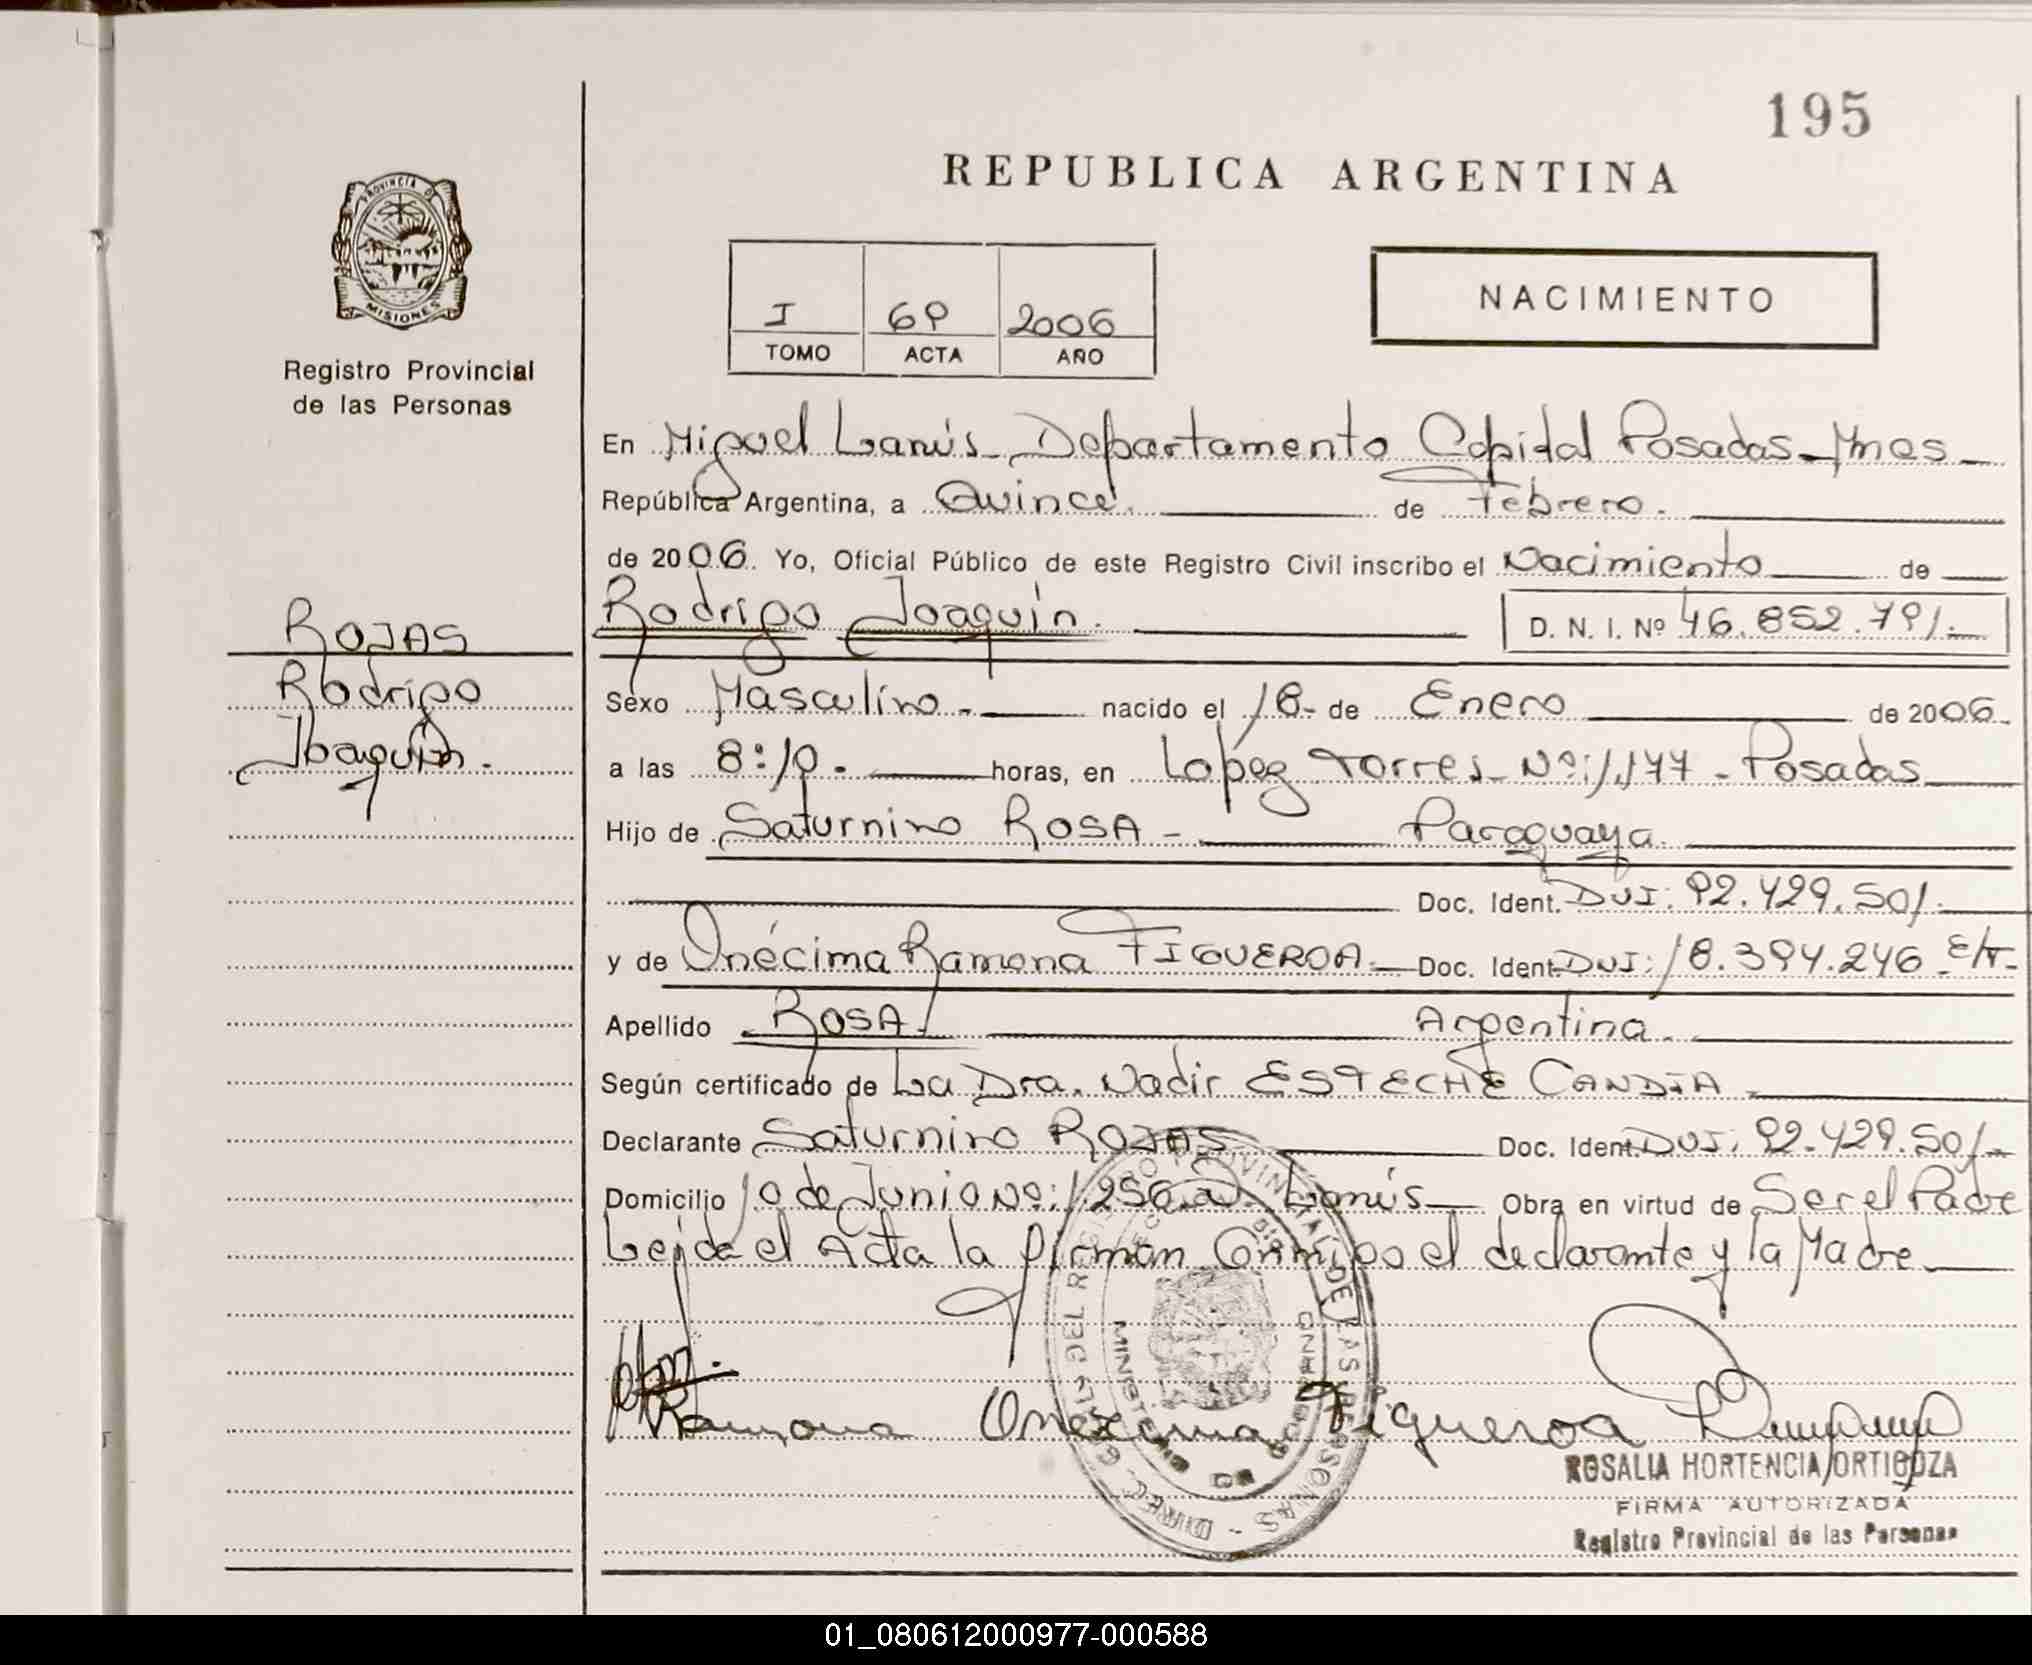 195
REPUBLICA ARGENTINA
PROVINCIA DE
MISIONES
Registro Provincial
de las Personas
I 69 2006
TOMO ACTA AÑO
NACIMIENTO
En Miguel Lanús - Departamento Capital Posadas - Mnes -
República Argentina, a Quince. de Febrero.
de 2006. Yo, Oficial Público de este Registro Civil inscribo el Nacimiento de
Rodrigo Joaquín. D. N. I. Nº 46.852.791.-
ROJAS
Rodrigo
Joaquín.
Sexo Masculino.- nacido el 18- de Enero de 2006.
a las 8:10. horas, en López Torres - Nº: 1.177 - Posadas
Hijo de Saturnino ROSA - Paraguaya.
Doc. Ident. DUI: 92.429.501.
y de Onécima Ramona FIGUEROA.- Doc. Ident. DUI: 18.394.246
Apellido ROSA. Argentina.
Según certificado de La Dra. Nadir ESTECHE CANDIA
Declarante Saturnino ROJAS Doc. Ident. DUI: 92.429.501-
Domicilio 10 de Junio Nº: 1.250 Lanús Obra en virtud de Ser el Padre
Leída el Acta la firman Conmigo el declarante y la Madre
Ramona Onecima Figueroa
ROSALIA HORTENCIA ORTIGOZA
FIRMA AUTORIZADA
Registro Provincial de las Personas
DIREC. GRAL. DEL REGISTRO PROVINCIAL DE LAS PERSONAS -
MINISTERIO DE GOBIERNO
01_080612000977-000588